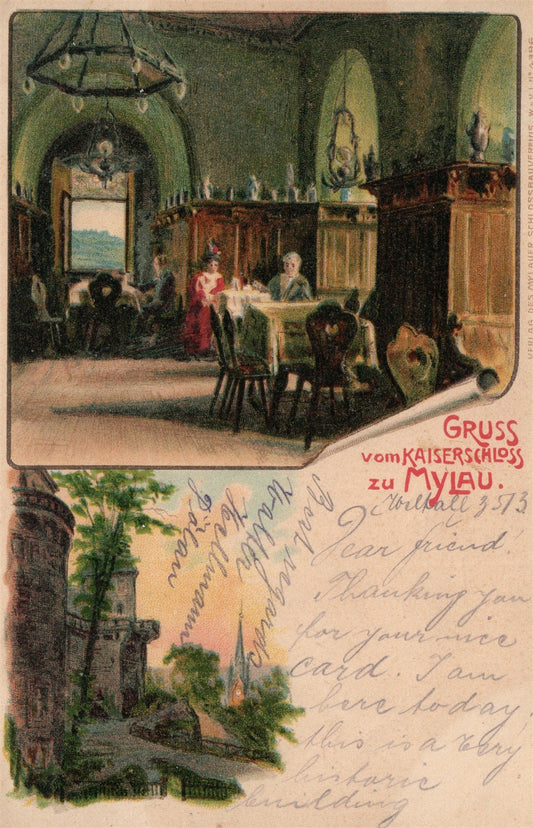 VERLAG DES MYLAUER SCHLOSSBAUVEREINS.
GRUSS
vom KAISERSCHLOSS
zu MYLAU.
Dear friend!
Thanking you
for your nice
card. I am
here today.
this is a very
historic
building
Best regards
Walter
Hellmann